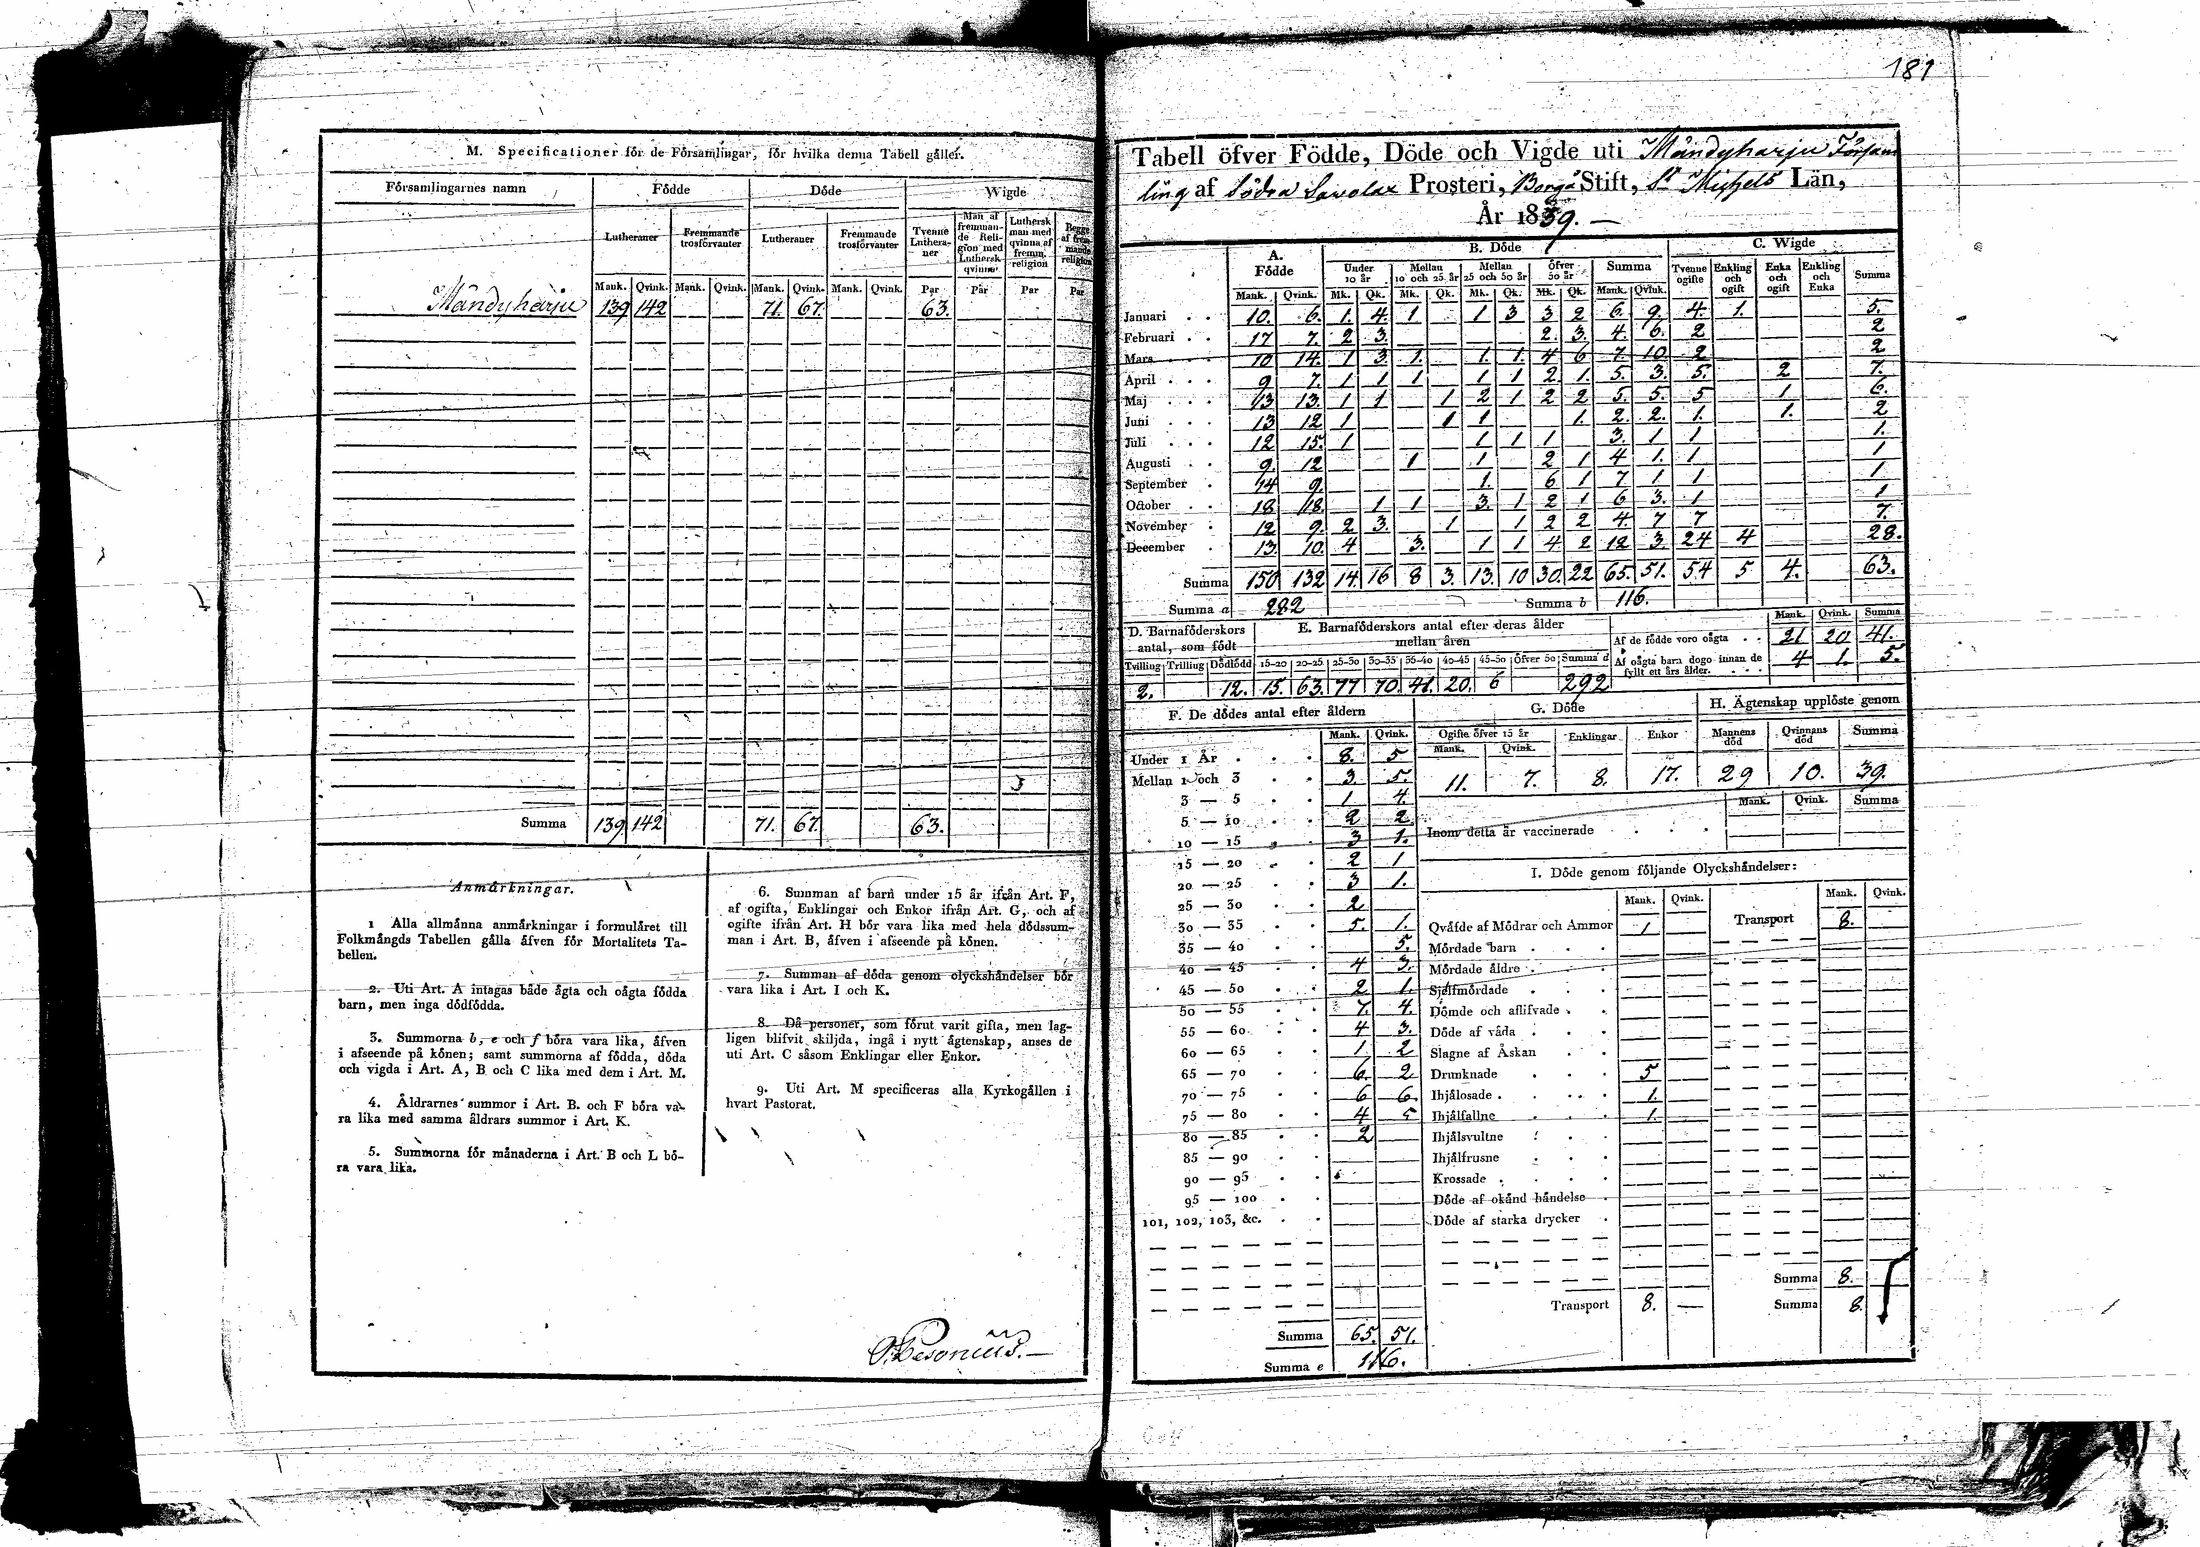 M. Specificationer för de Församlingar, för hvilka denna Tabell gäller.
Församlingarnes namn Födde Döde Wigde
Lutheraner Fremmande trosförvanter Lutheraner Fremmande trosförvanter Tvenne Lutheraner Man af fremmande Religion med Luthersk qvinna Luthersk man med qvinna af fremm. religion Begge af fremmande religion
Mank. Qvink. Mank. Qvink. Mank. Qvink. Mank. Qvink. Par Par Par Par
Mändyharju 139 142 71. 67. 63.
Summa 139 142 71. 67. 63.
Anmärkningar.
1 Alla allmänna anmärkningar i formuläret till
Folkmängds Tabellen gälla äfven för Mortalitets Ta-
bellen.
2. Uti Art. A intagas både ägta och oägta födda
barn, men inga dödfödda.
3. Summorna b, e och f böra vara lika, äfven
i afseende på könen; samt summorna af födda, döda
och vigda i Art. A, B och C lika med dem i Art. M.
4. Åldrarnes summor i Art. B. och F böra va-
ra lika med samma åldrars summor i Art. K.
5. Summorna för månaderna i Art. B och L bö-
ra vara lika.
6. Summan af barn under 15 år ifrån Art. F,
af ogifta, Enklingar och Enkor ifrån Art. G, och af
ogifte ifrån Art. H bör vara lika med hela dödssum-
man i Art. B, äfven i afseende på könen.
7. Summan af döda genom olyckshändelser bör
vara lika i Art. I och K.
8. Då personer, som förut varit gifta, men lag-
ligen blifvit skiljda, ingå i nytt ägtenskap, anses de
uti Art. C såsom Enklingar eller Enkor.
9. Uti Art. M specificeras alla Kyrkogällen i
hvart Pastorat.
181
Tabell öfver Födde, Döde och Vigde uti Mändyharju Försam
ling af Södra Savolax Prosteri, Borgå Stift, St Michels Län,
År 1839.
A. Födde B. Döde C. Wigde
Under 10 år Mellan 10 och 25 år Mellan 25 och 50 år Öfver 50 år Summa Tvenne ogifte Enkling och ogift Enka och ogift Enkling och Enka Summa
Mank. Qvink. Mk. Qk. Mk. Qk. Mk. Qk. Mk. Qk. Mank. Qvink.
Januari 10. 6. 1. 4. 1 1 3 3 2 6. 9. 4. 1. 5.
Februari 17 7. 2 3. 2. 3. 4. 6. 2 2
Mars 10 14. 1 3. 1. 1. 1. 4 6 7. 10. 2 2
April 9 7. 1 1 1 1 1 2. 1. 5. 3. 5. 2 7.
Maj 13 13. 1 1 1 2 1 2 2 5. 5. 5 1. 6.
Juni 13 12 1 1 1 1. 2. 2. 1. 1. 2
Juli 12 15. 1 1 1 1 3. 1 1 1.
Augusti 9. 12 1 1 2 1 4 1. 1 1
September 14 9. 1. 6 1 7 1 1 1
October 18 18 1 1 3. 1 2 1 6 3. 1 1
November 12 9. 2 3. 1 1 2 2 4. 7 7 7.
December 13. 10. 4 3. 1 1 4 2 12 3. 24 4 28.
Summa 150 132 14. 16 8 3. 13. 10 30. 22 65. 51. 54 5 4. 63.
Summa a 282 Summa b 116.
D. Barnaföderskors antal, som födt E. Barnaföderskors antal efter deras ålder mellan åren Mank. Qvink. Summa
Af de födde voro oägta 21 20 41.
Tvilling Trilling Dödfödd 15-20 20-25 25-30 30-35 35-40 40-45 45-50 Öfver 50 Summa d Af oägta barn dogo innan de fyllt ett års ålder. 4 1. 5.
2. 12. 15. 63. 77 70. 41. 20. 6 292
F. De dödes antal efter åldern G. Döde H. Ägtenskap upplöste genom
Mank. Qvink. Ogifte öfver 15 år Enklingar Enkor Mannens död Qvinnans död Summa
Mank. Qvink.
11. 7. 8. 17. 29 10. 39.
Under 1 År 8. 5
Mellan 1 och 3 3. 5.
3 — 5 1 4.
5 — 10 2 2.
10 — 15 3 1.
15 — 20 2 1
20 — 25 3 1.
25 — 30 2
30 — 35 5. 1.
35 — 40 5.
40 — 45 4 3.
45 — 50 2 1.
50 — 55 7. 4.
55 — 60 4 3.
60 — 65 1. 2
65 — 70 6. 2
70 — 75 6 6.
75 — 80 4 5
80 — 85 2
85 — 90
90 — 95
95 — 100
101, 102, 103, &c.
Summa 65. 51.
Summa e 116.
Mank. Qvink. Summa
Inom detta år vaccinerade
I. Döde genom följande Olyckshändelser:
Mank. Qvink. Mank. Qvink.
Qväfde af Mödrar och Ammor 1 Transport 8.
Mördade barn
Mördade äldre
Sjelfmördade
Dömde och aflifvade
Döde af våda
Slagne af Åskan
Drunknade 5
Ihjälosade 1.
Ihjälfallne 1.
Ihjälsvultne
Ihjälfrusne
Krossade
Döde af okänd händelse
Döde af starka drycker
Summa 8.
Transport 8. — Summa 8.